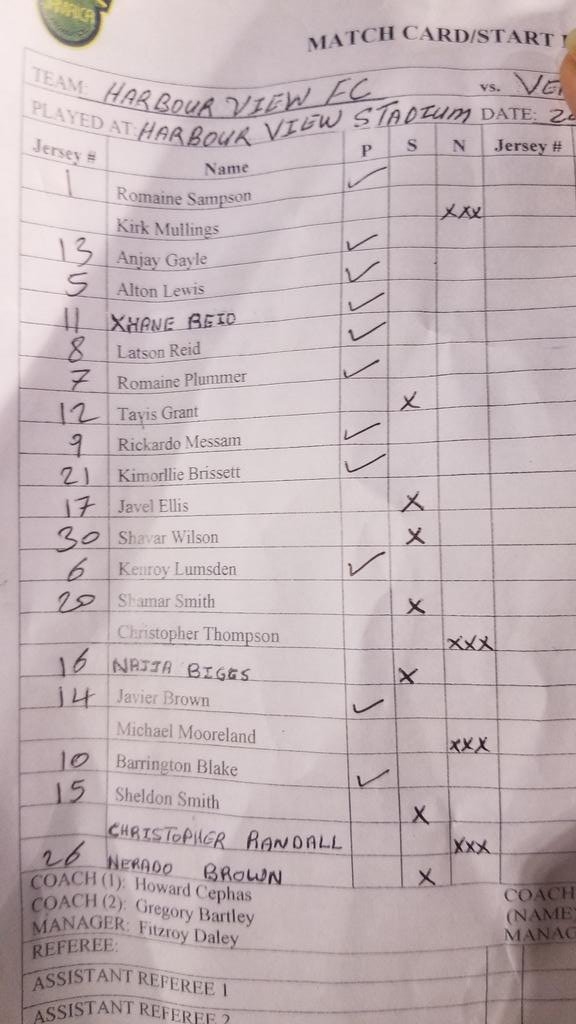 JAMAICA
MATCH CARD/START
TEAM: HARBOUR VIEW FC vs.
PLAYED AT: HARBOUR VIEW STADIUM DATE:
Jersey # Name P S N Jersey #
1 Romaine Sampson ✓
Kirk Mullings xxx
13 Anjay Gayle ✓
5 Alton Lewis ✓
11 XHANE REID ✓
8 Latson Reid ✓
7 Romaine Plummer ✓
12 Tavis Grant x
9 Rickardo Messam ✓
21 Kimorllie Brissett ✓
17 Javel Ellis x
30 Shavar Wilson x
6 Kenroy Lumsden ✓
20 Shamar Smith x
Christopher Thompson xxx
16 NAJJA BIGGS x
14 Javier Brown ✓
Michael Mooreland xxx
10 Barrington Blake ✓
15 Sheldon Smith x
CHRISTOPHER RANDALL xxx
26 NERADO BROWN x
COACH (1): Howard Cephas COACH
COACH (2): Gregory Bartley (NAME
MANAGER: Fitzroy Daley MANAG
REFEREE:
ASSISTANT REFEREE 1
ASSISTANT REFEREE 2